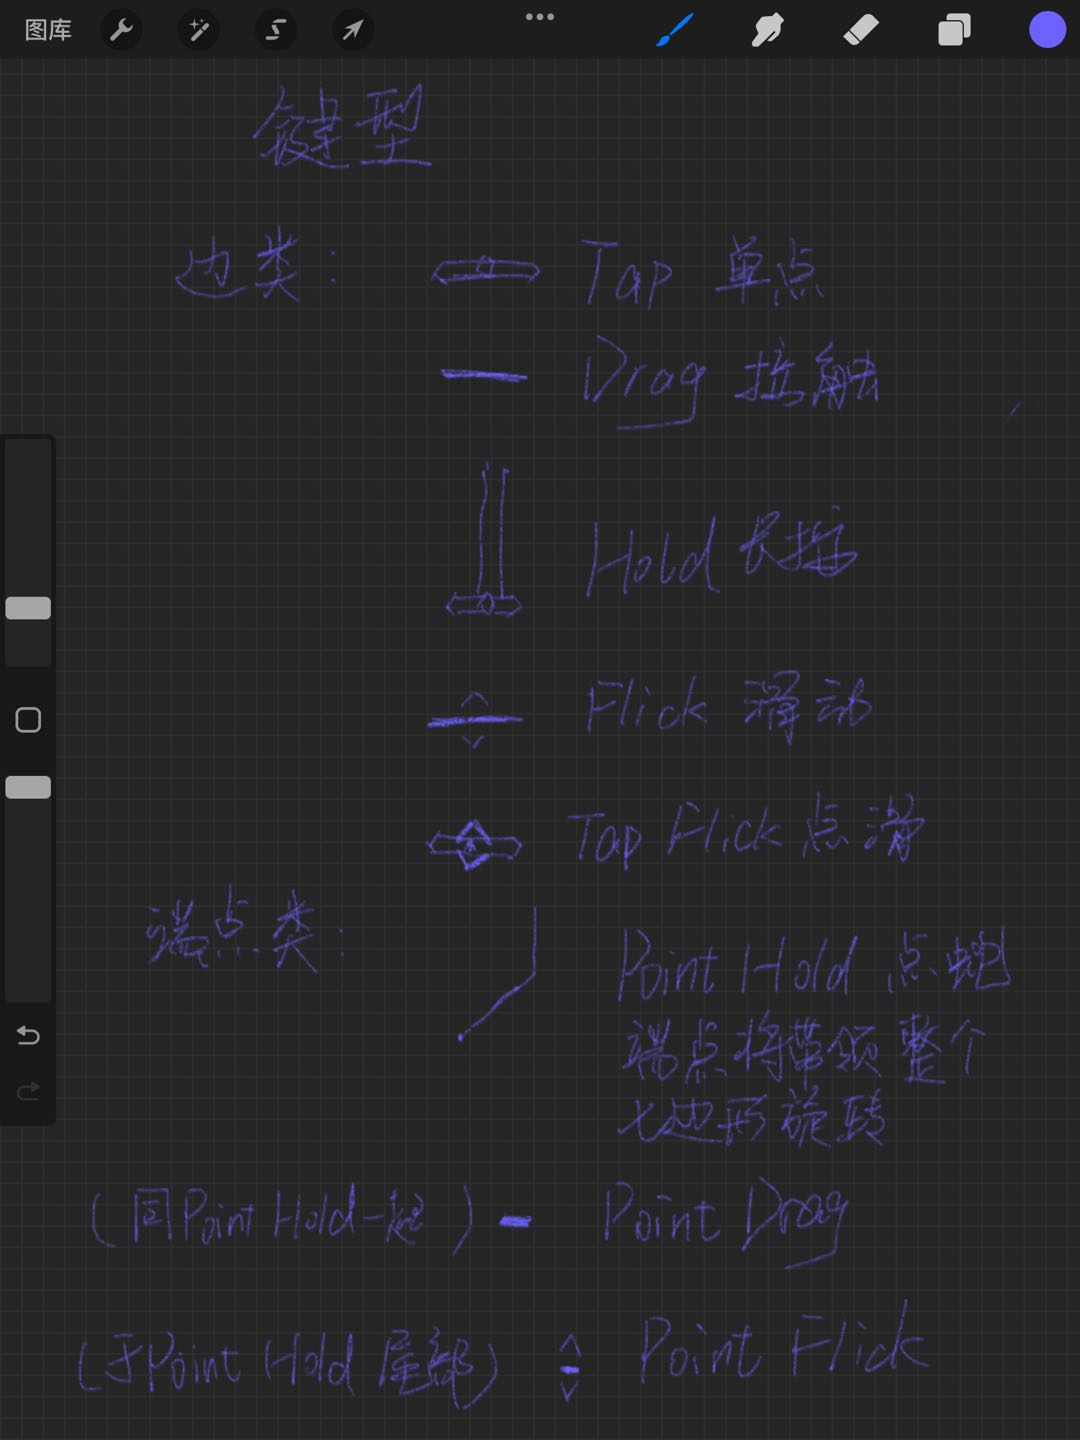 图库
键型
边类: Tap 单点
Drag 接触
Hold 长按
Flick 滑动
Tap Flick 点滑
端点类: Point Hold 点蛇
端点将带领整个
七边形旋转
(同Point Hold一起) Point Drag
(于Point Hold 尾部) Point Flick